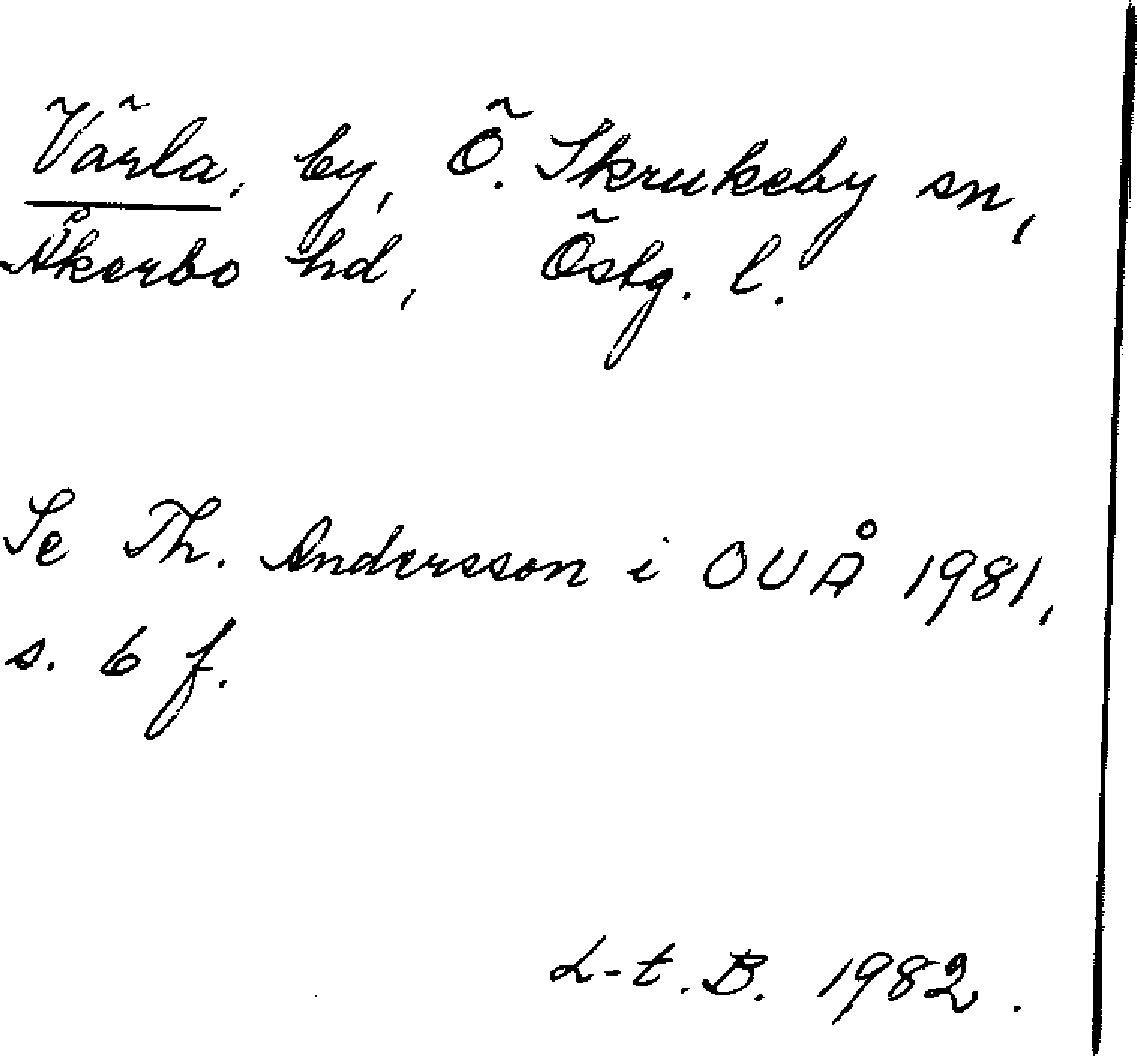 Värla, by, Ö. Skrukeby sn,
Åkerbo hd, Östg. l.
Se Th. Andersson i OUÅ 1981,
s. 6 f.
L-t. B. 1982.